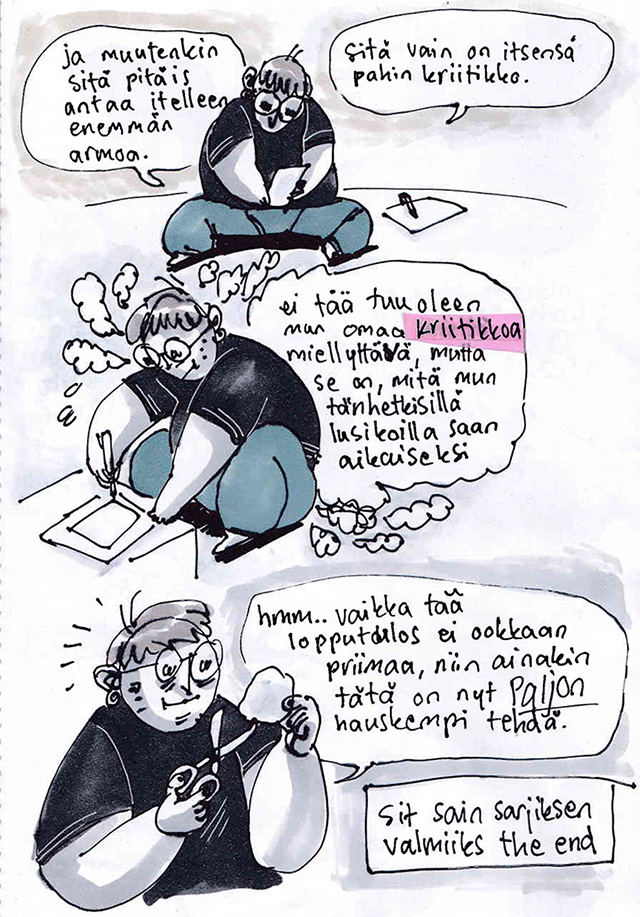 ja muutenkin
sitä pitäis
antaa itelleen
enemmän
armoa.
Sitä vain on itsensä
pahin kriitikko.
ei tää tuu oleen
mun omaa kriitikkoa
miellyttävä, mutta
se on, mitä mun
tänhetkisillä
lusikoilla saan
aikaiseksi
hmm.. vaikka tää
lopputulos ei ookkaan
priimaa, niin ainakin
tätä on nyt paljon
hauskempi tehdä.
Sit sain sarjiksen
valmiiks the end